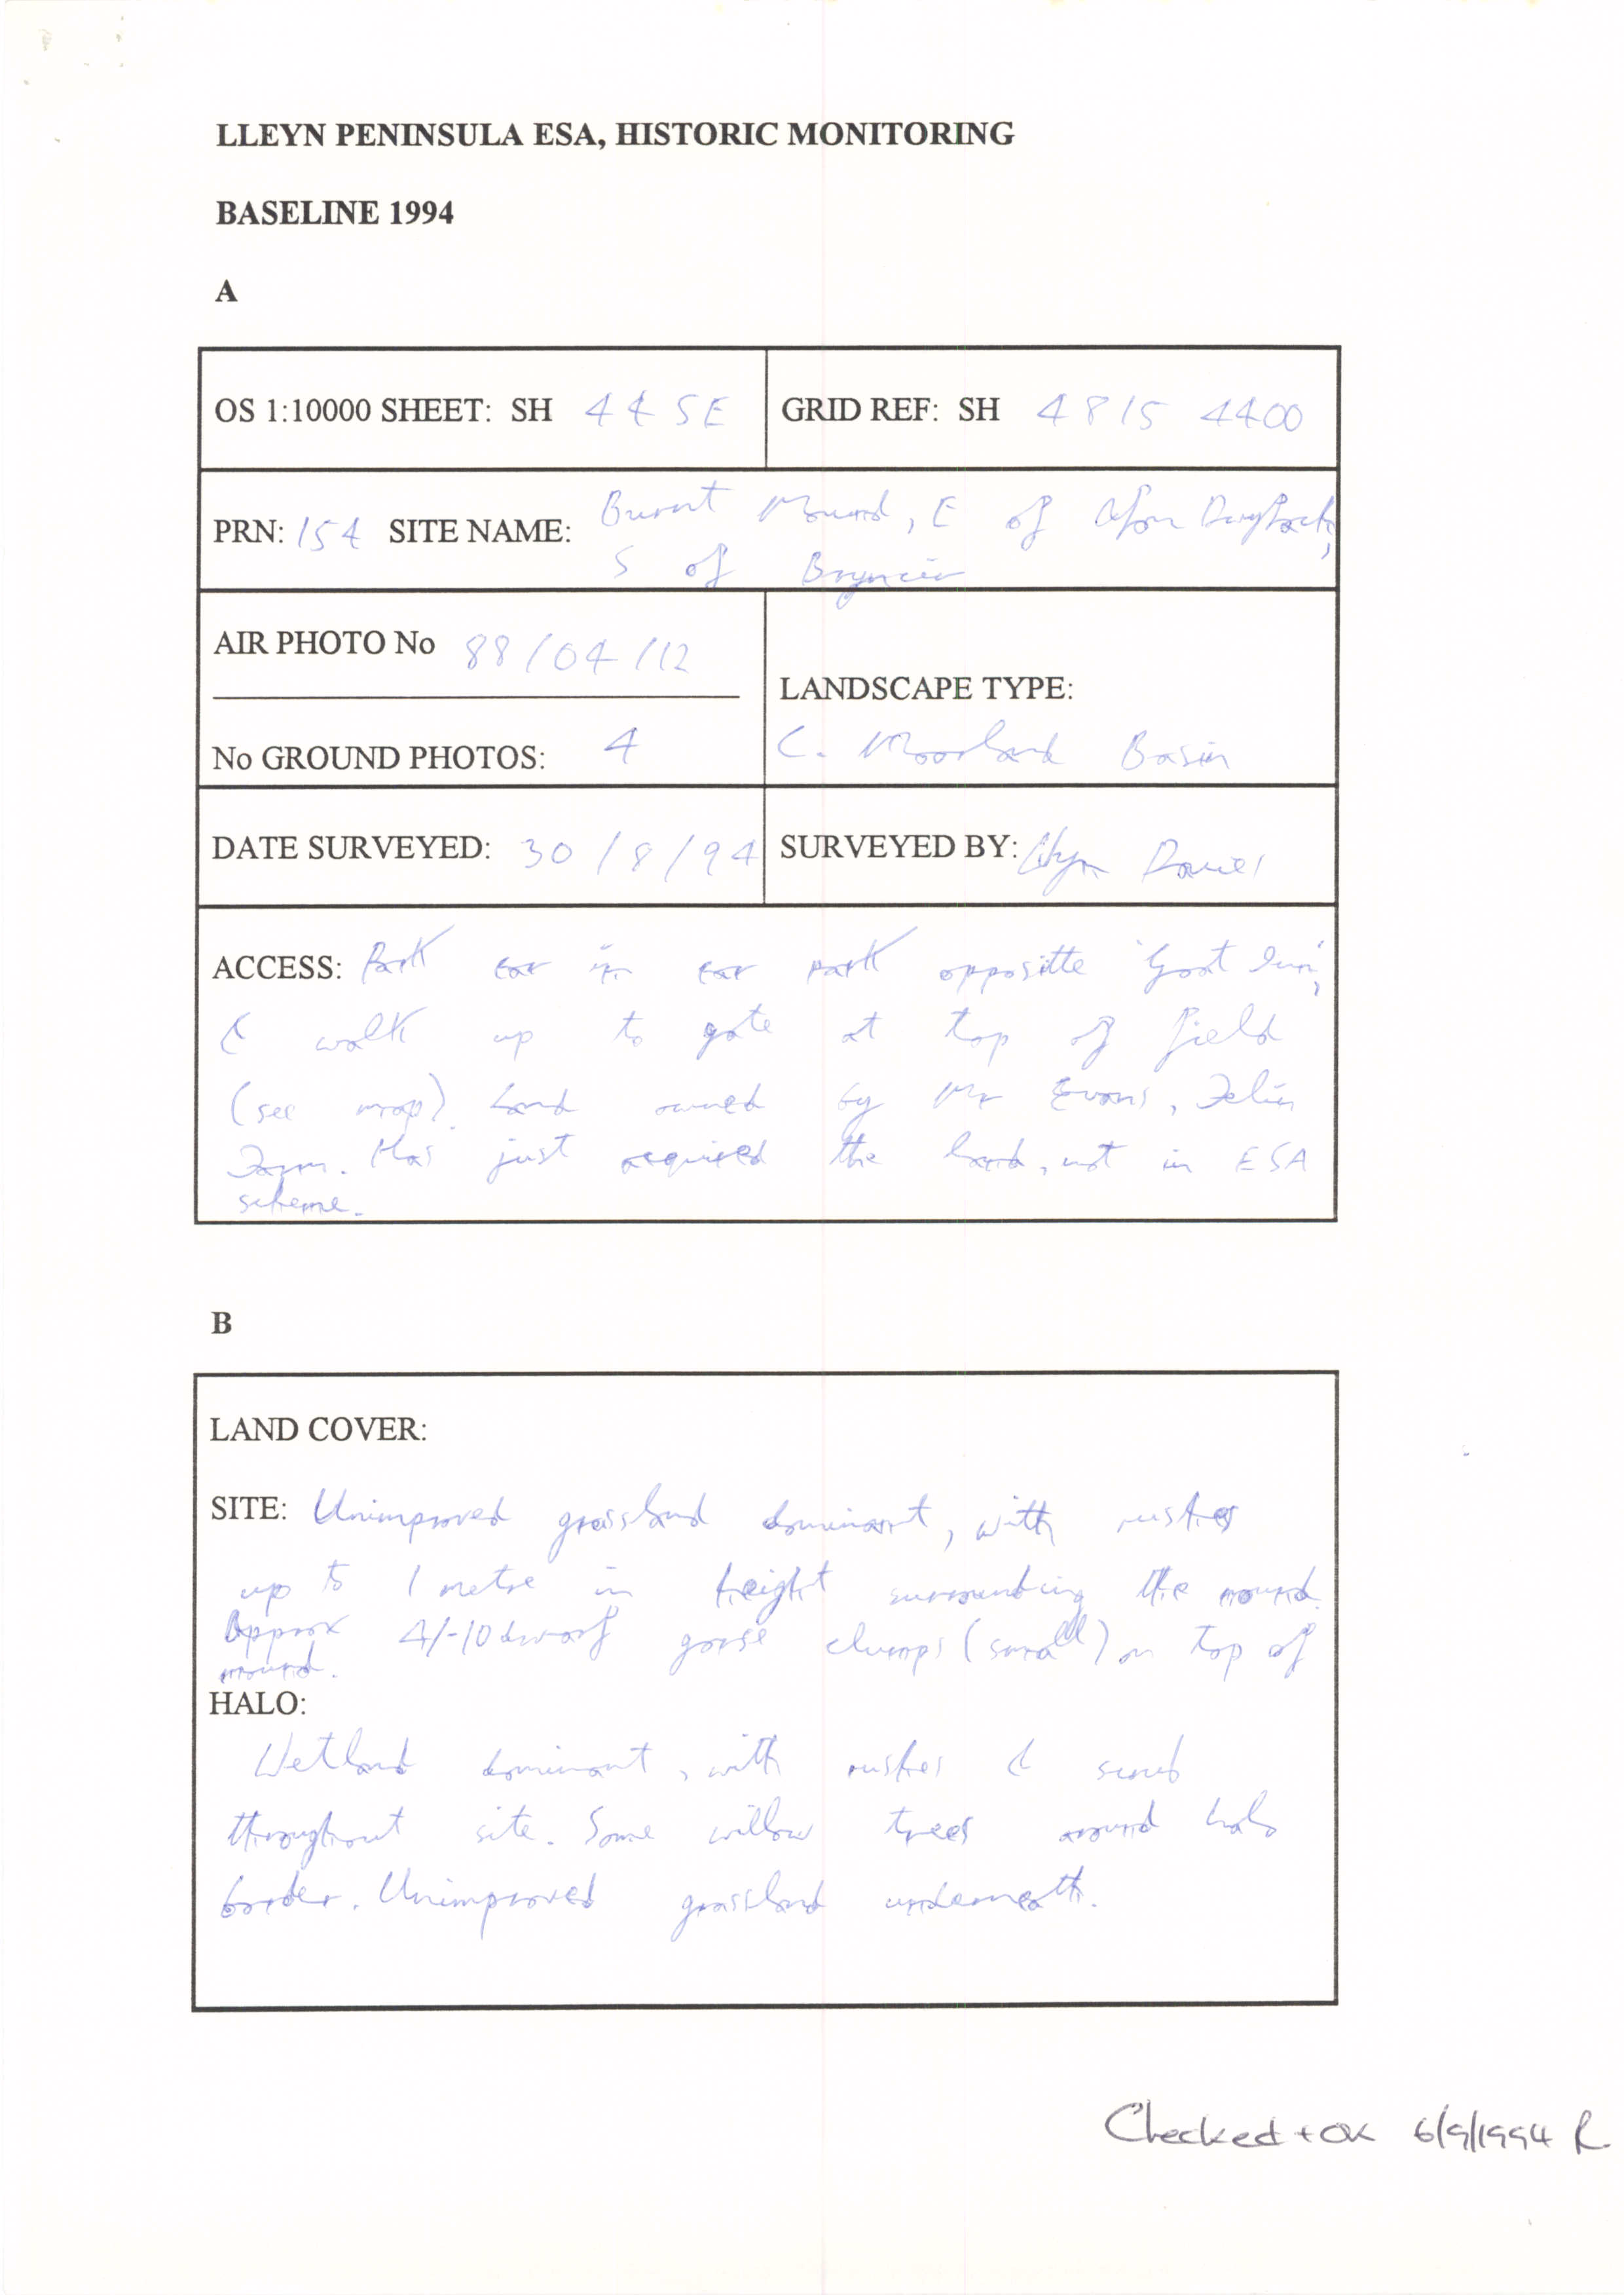 LLEYN PENINSULA ESA, HISTORIC MONITORING
BASELINE 1994
A
OS 1:10000 SHEET: SH 44 SE
GRID REF: SH 4815 4400
PRN: 154 SITE NAME: Burnt Mound, E of Afon
S of Bryncir
AIR PHOTO No 88/04/112
No GROUND PHOTOS: 4
LANDSCAPE TYPE:
C. Moorland Basin
DATE SURVEYED: 30/8/94
SURVEYED BY: Davies
ACCESS: Park car in car park oppositte 'Goat Inn',
& walk up to gate at top of field
(see map). Land owned by Mr Evans, Felin
Farm. Has just acquired the land, not in ESA
scheme.
B
LAND COVER:
SITE: Unimproved grassland dominant, with rushes
up to 1 metre in height surrounding the mound.
Approx 4/-10 dwarf gorse clumps (small) on top of
mound.
HALO:
Wetland dominant, with rushes & scrub
throughout site. Some willow trees around halo
border. Unimproved grassland underneath.
Checked + OK 6/9/1994 R